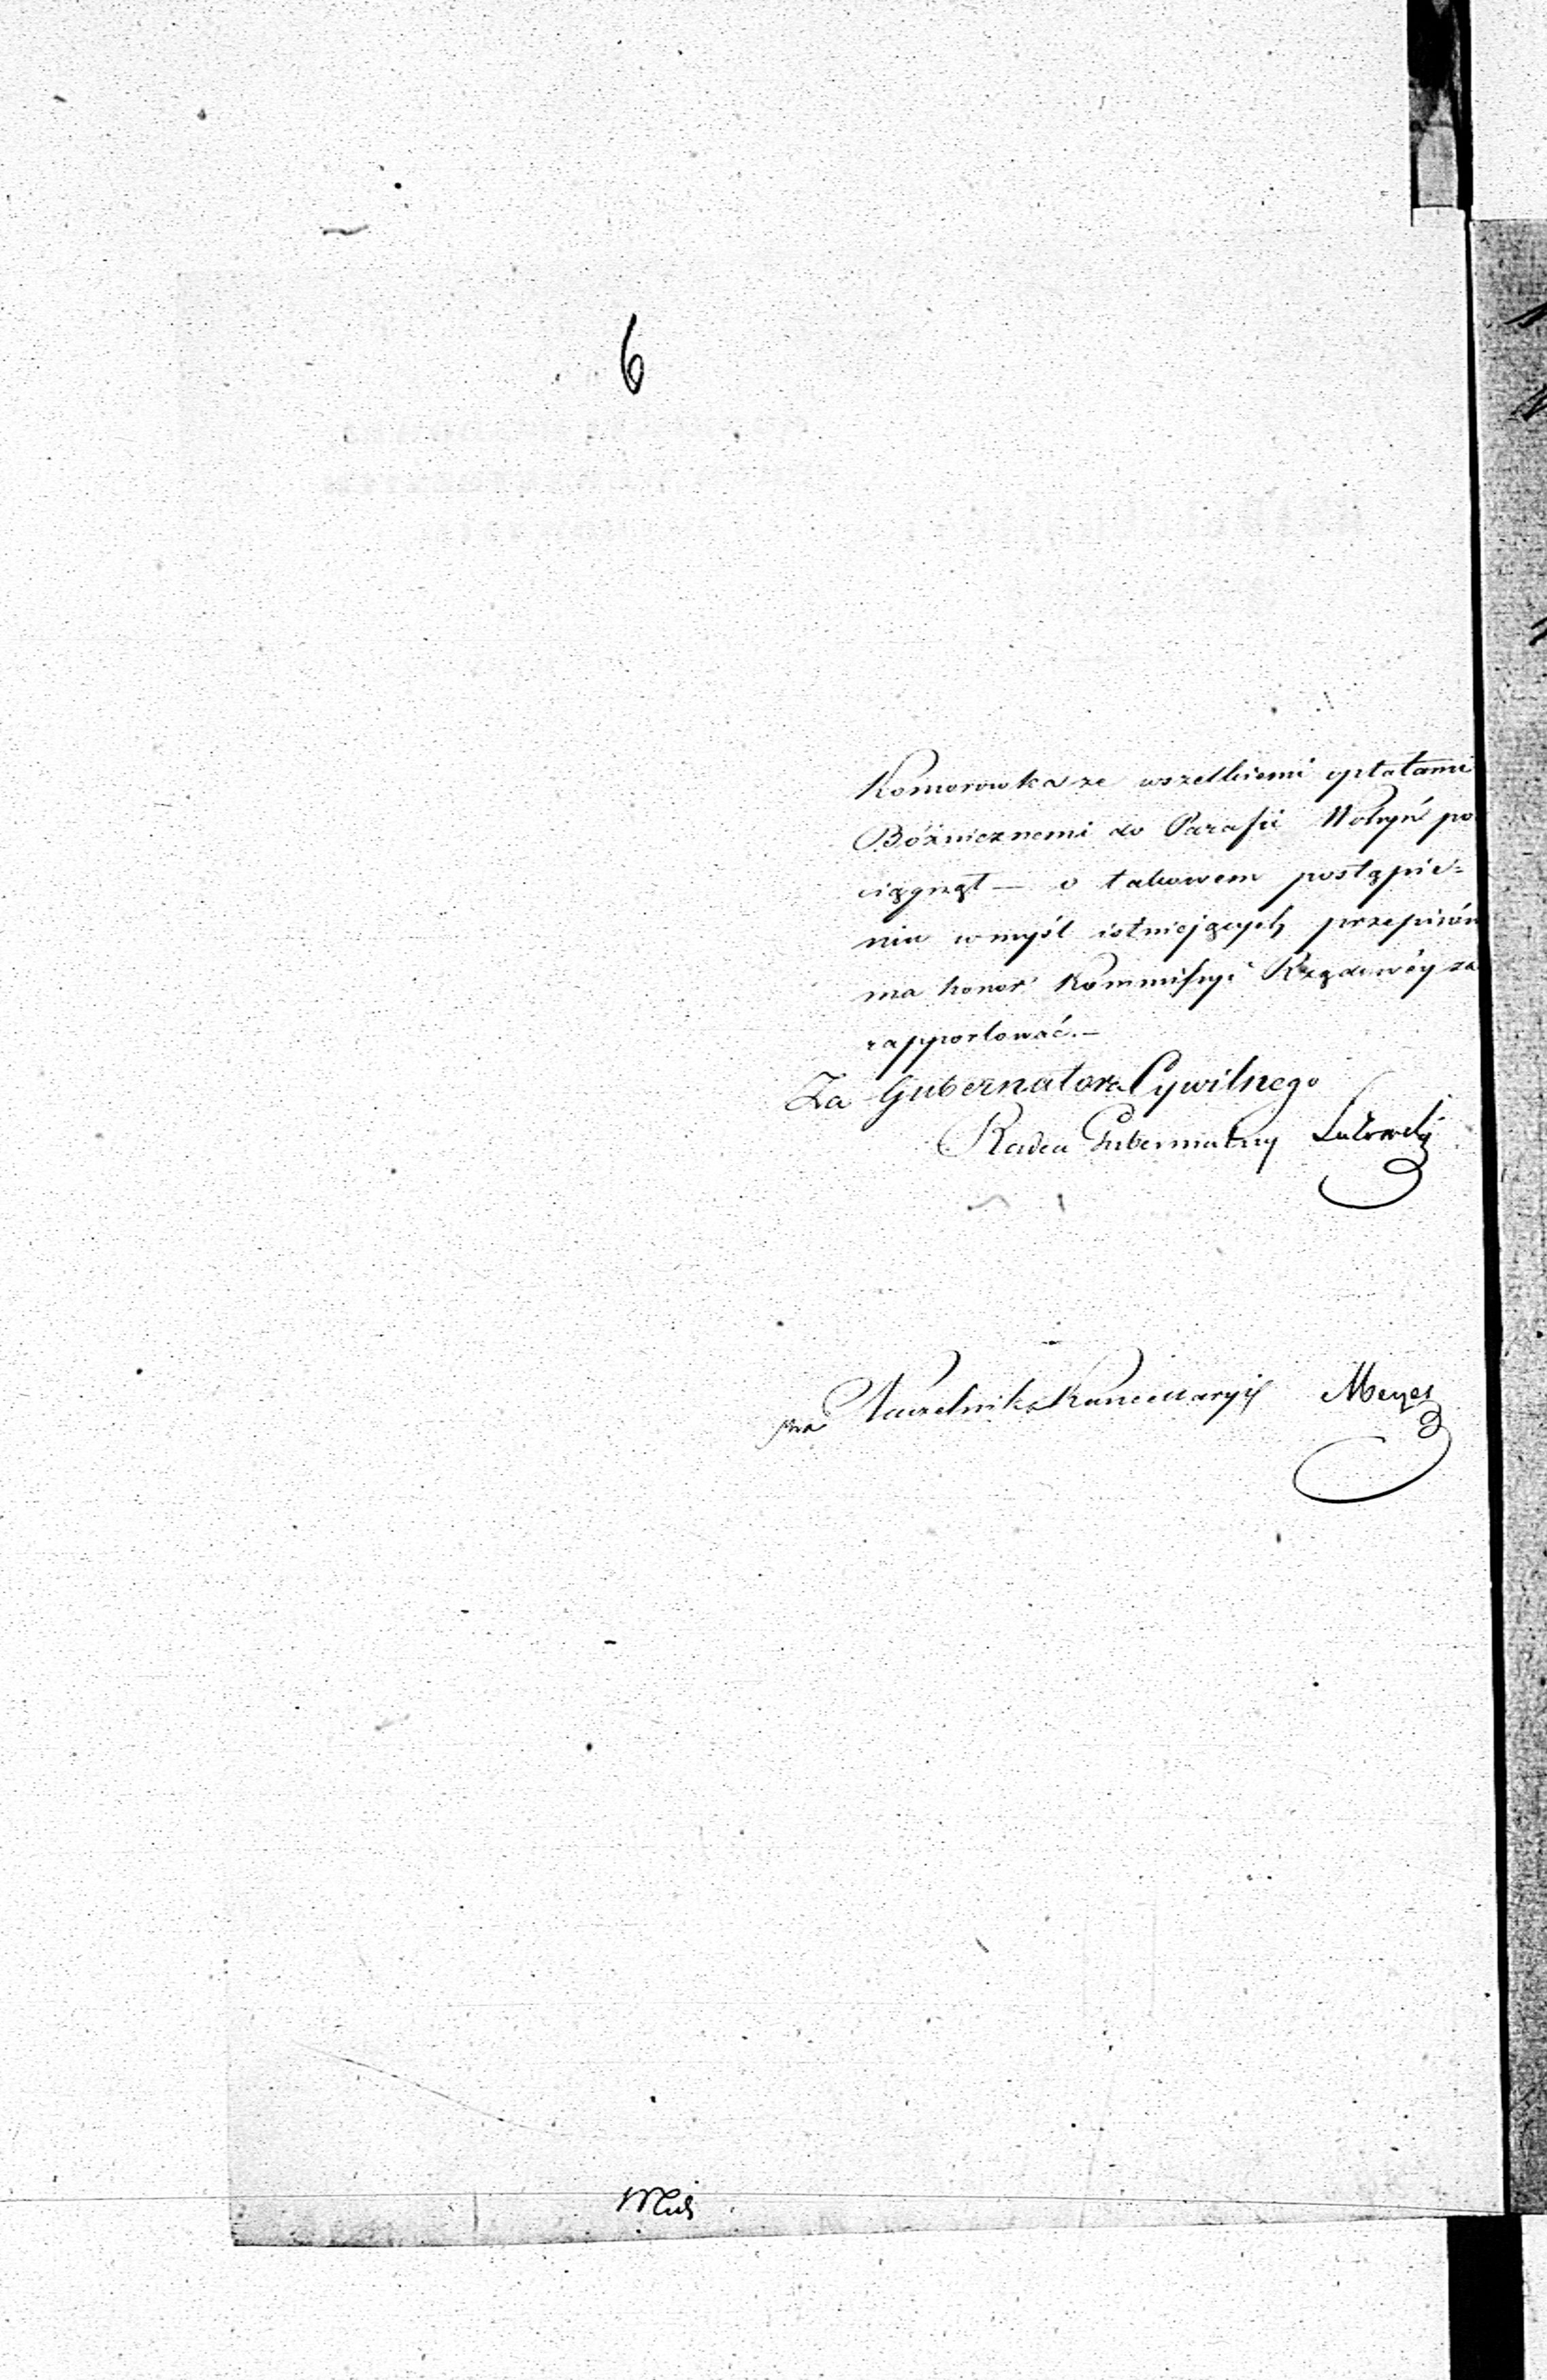 6
Komorowka ze wszelkiemi opłatami
Bóżnicznemi do Parafii Wohyń po
ciągnął — o takowem postąpie=
niu w myśl istniejących przepisów
ma honor Kommissyi Rządowéy za
rapportować. —
Za Gubernatora Cywilnego
Radca Gubernialny
Naczelnik Kancellaryi Meyer